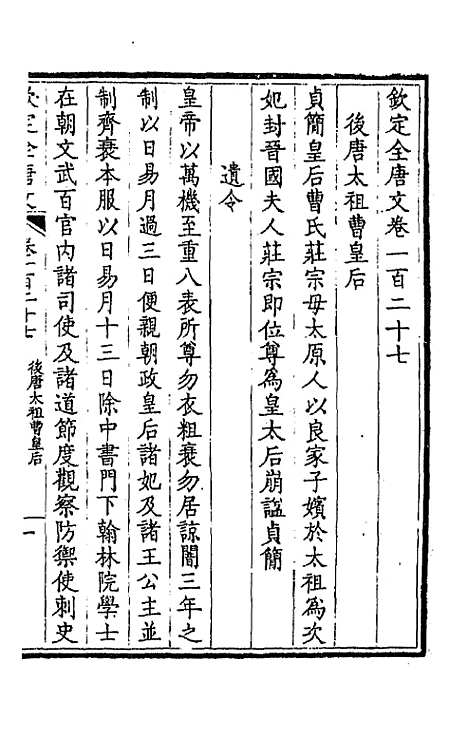 欽定全唐文卷一百二十七
後唐太祖曹皇后
貞簡皇后曹氏莊宗毋太原人以良家子嬪於太祖為次
妃封晉國夫人莊宗即位尊為皇太后崩諡貞簡
遺令
皇帝以萬機至重八表所尊勿衣粗衰勿居諒闇三年之
制以日易月過三日便親朝政皇后諸妃及諸王公主並
制齊衰本服以日易月十三日除中書門下翰林院學士
在朝文武百官內諸司使及諸道節度觀察防禦使刺史
欽定全唐文 卷一百二十七 後唐太祖曹皇后 一